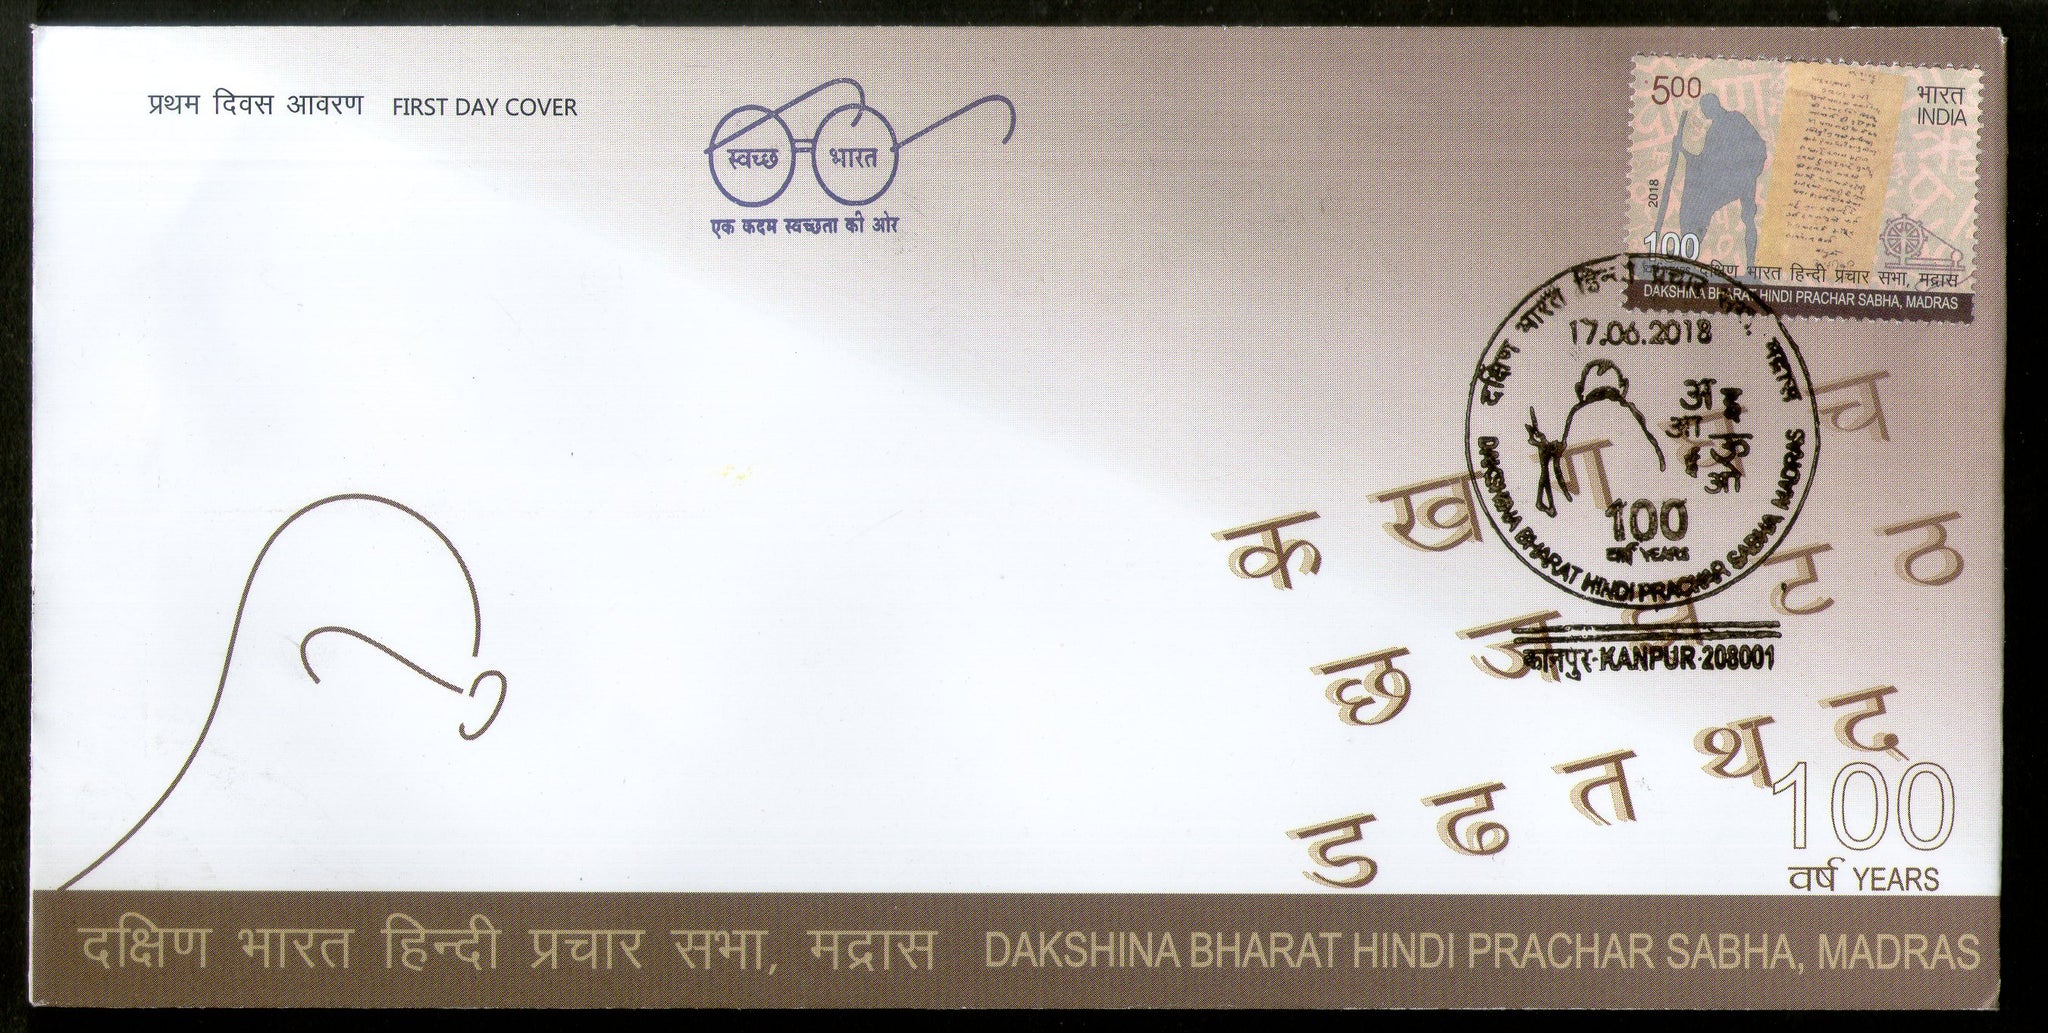 प्रथम दिवस आवरण FIRST DAY COVER
स्वच्छ भारत
एक कदम स्वच्छता की ओर
500
भारत
INDIA
2018
100
दक्षिण भारत हिन्दी प्रचार सभा, मद्रास
DAKSHINA BHARAT HINDI PRACHAR SABHA, MADRAS
दक्षिण भारत हिन्दी प्रचार सभा, मद्रास
17.06.2018
अ
आ
100
वर्ष YEARS
DAKSHINA BHARAT HINDI PRACHAR SABHA, MADRAS
कानपुर-KANPUR-208001
क ख ग घ च
छ ज झ ट ठ
ड ढ त थ द
100
वर्ष YEARS
दक्षिण भारत हिन्दी प्रचार सभा, मद्रास DAKSHINA BHARAT HINDI PRACHAR SABHA, MADRAS